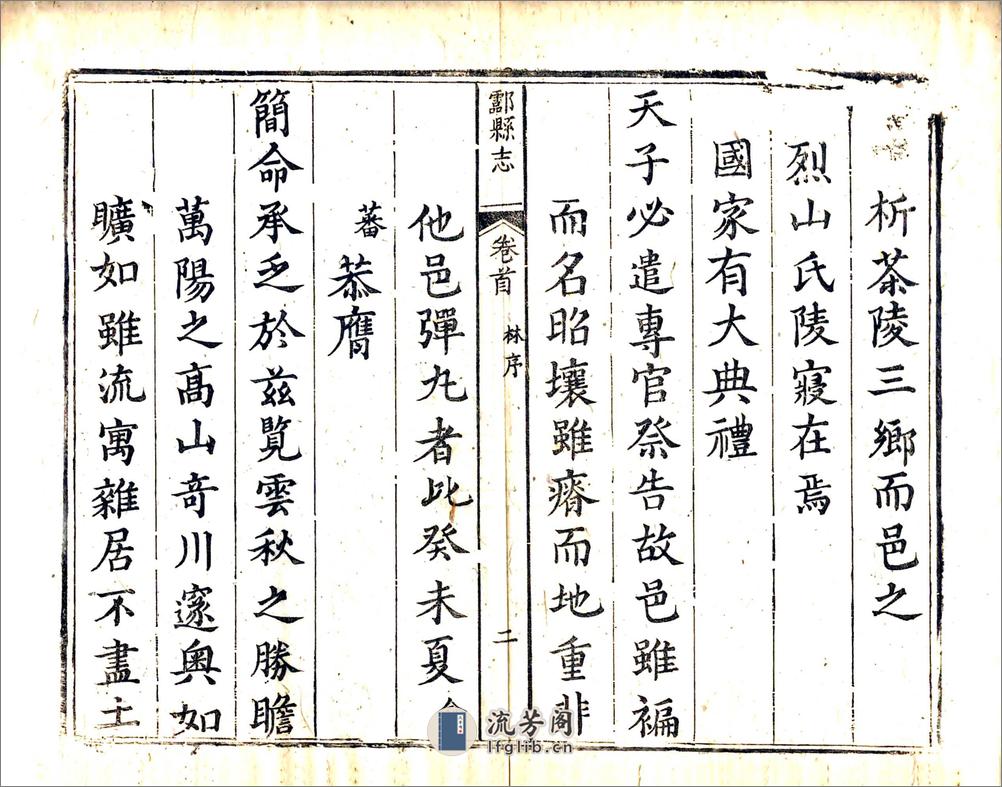 析茶陵三鄉而邑之
烈山氏陵寢在焉
國家有大典禮
天子必遣專官祭告故邑雖褊
而名昭壤雖瘠而地重非
酃縣志
卷首
林序
二
他邑彈丸者比癸未夏
蕃
恭膺
簡命承乏於茲覽雲秋之勝瞻
萬陽之高山奇川邃奧如
曠如雖流寓雜居不盡土
流芳阁
lfglib.cn